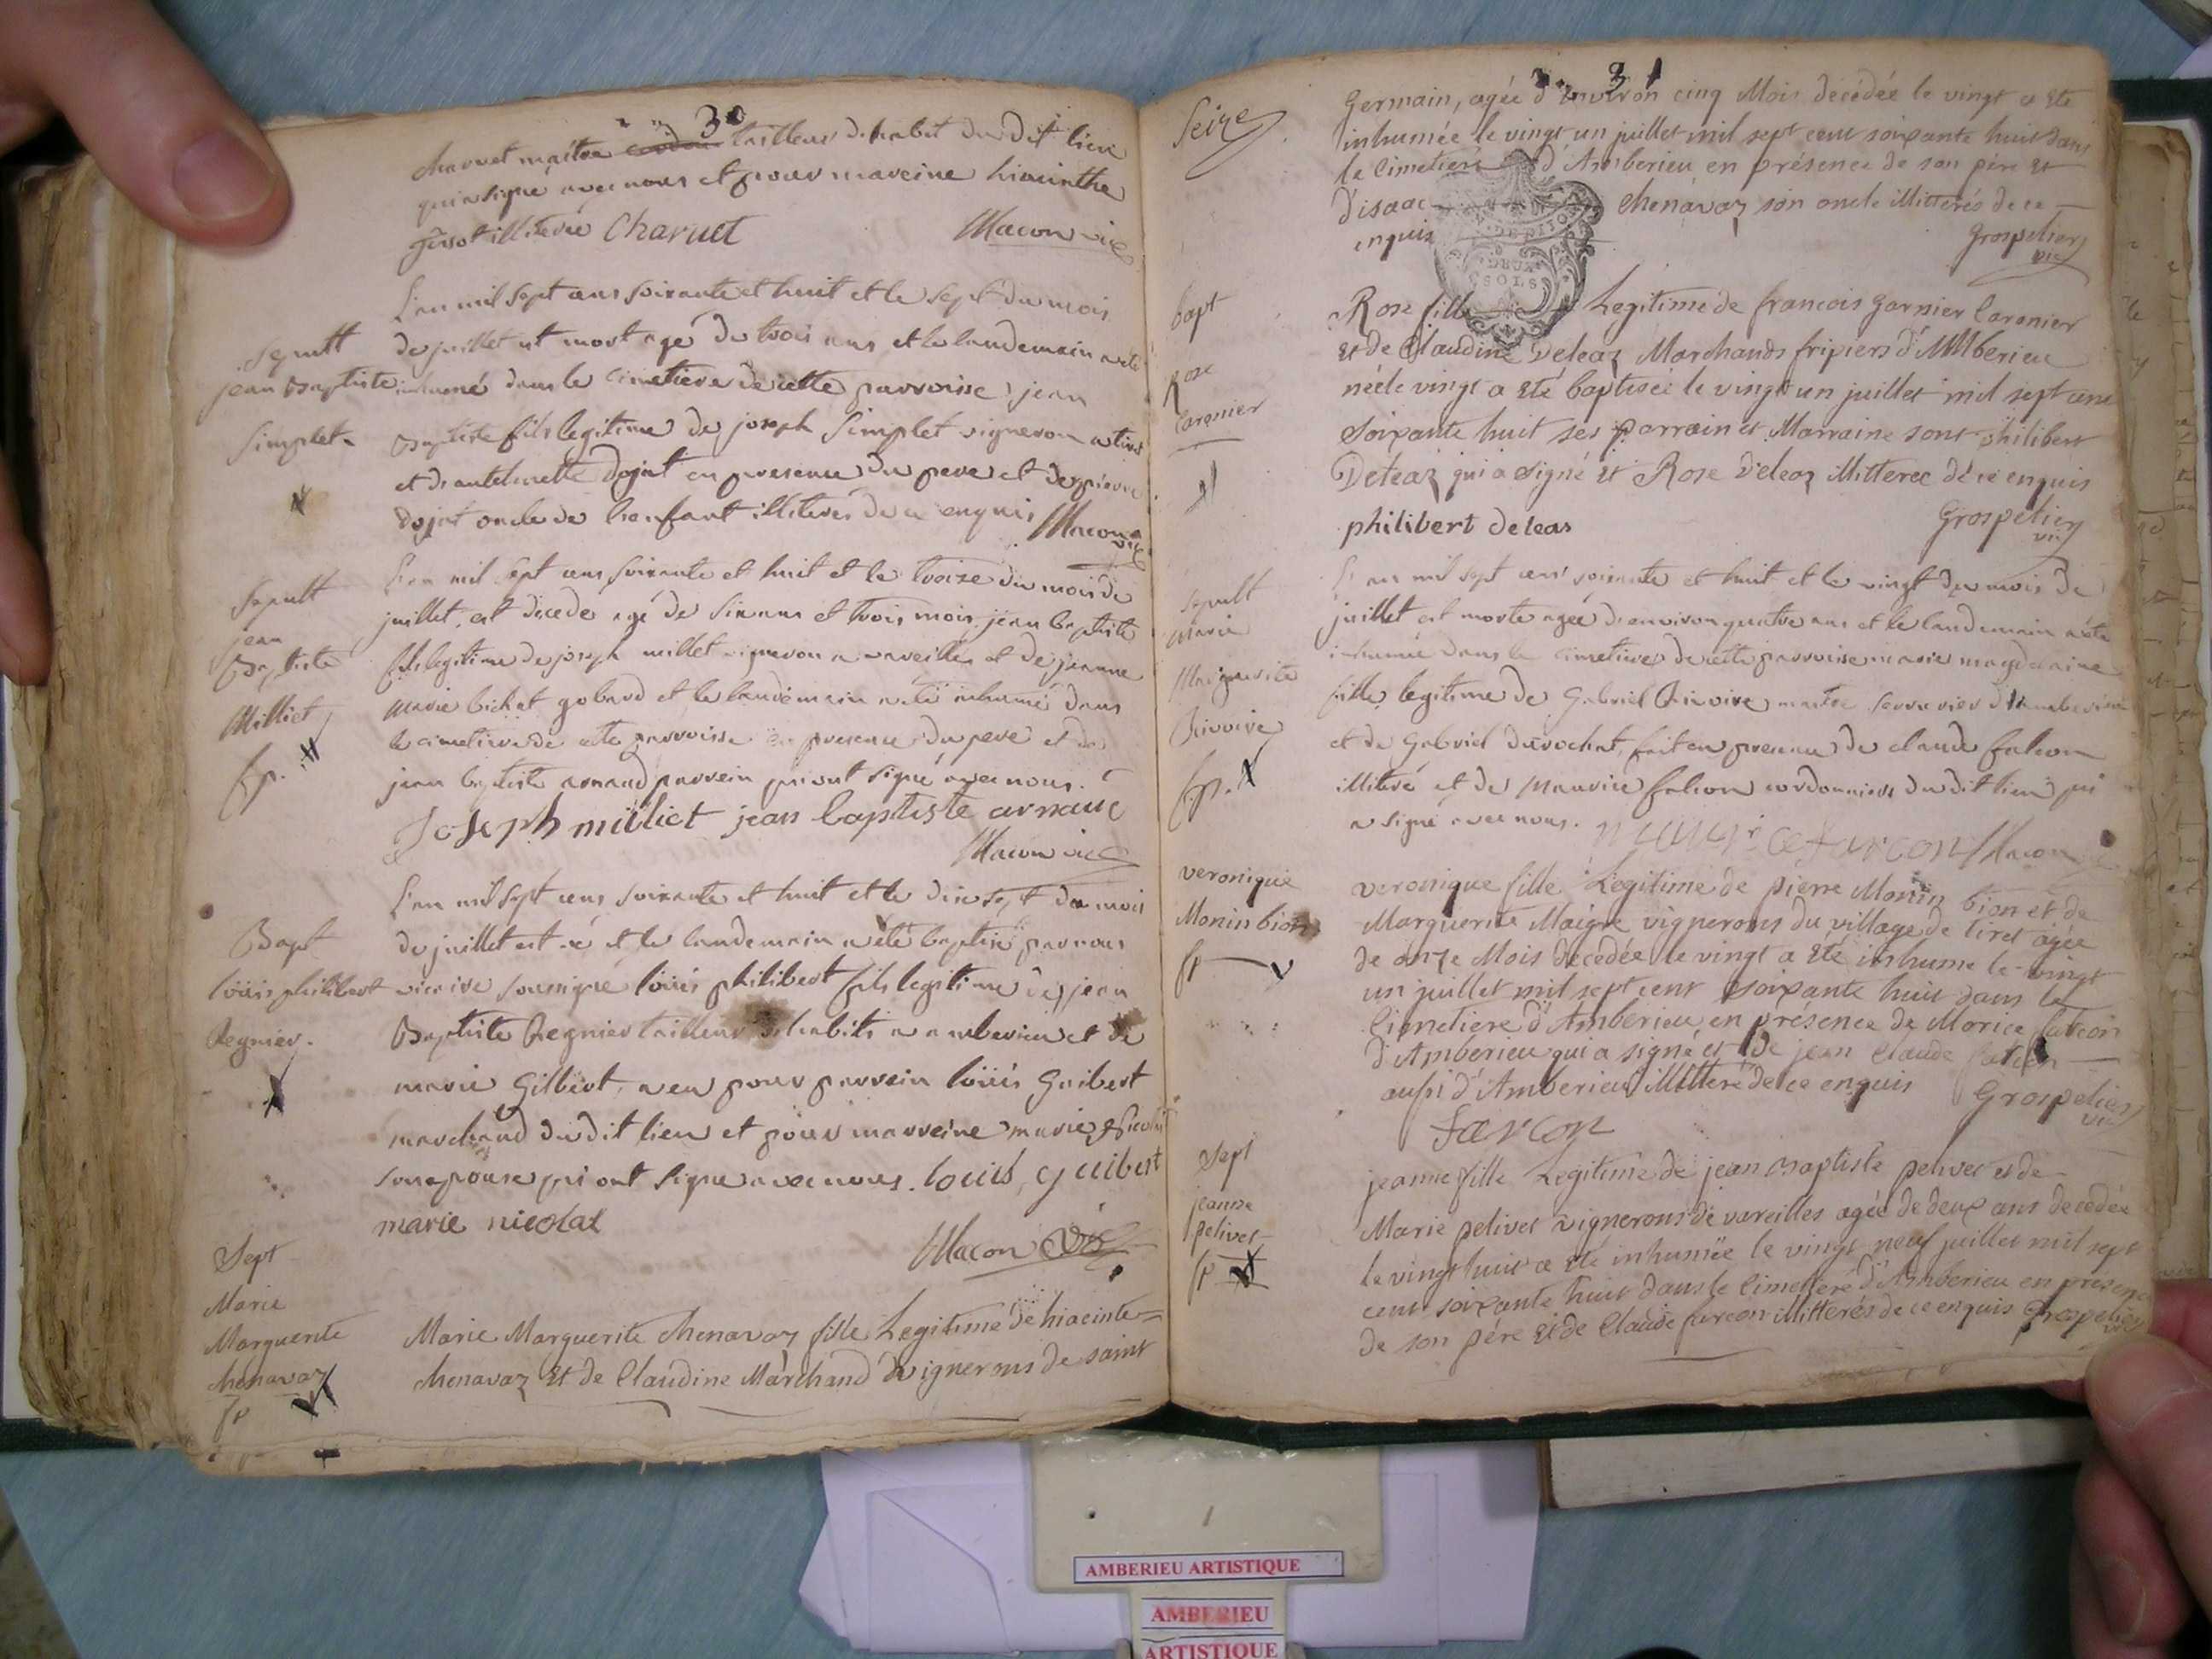 30
charuet maitre tailleur d'habit du dit lieu
qui a signé avec nous et pour mareine hiacinthe
illiterée Charuet Macon vic
L'an mil sept cens soixante et huit et le sept du mois
Sepult
de juillet est mort agé de trois ans et le landemain a eté
jean Baptiste
inhumé dans le cimetiere de cette parroisse jean
Simplet
Baptiste fils legitime de joseph Simplet vigneron
et d'antelmette Dojat en presence du pere et de pierre
Dojat oncle de l'enfant illiterés de ce enquis Macon vic
L'an mil sept cens soixante et huit et le treize du mois de
Sepult
juillet est decedé agé de six ans et trois mois jean baptiste
jean
Baptiste
fils legitime de joseph milliet vigneron a vareilles et de jeanne
Milliet
marie bichat gobard et le landemain a eté inhumé dans
le cimetiere de cette parroisse en presence du pere et de
fp.
jean baptiste arnaud parrein qui ont signé avec nous.
Joseph milliet jean baptiste arnaud
Macon vic
L'an mil sept cens soixante et huit et le dix sept du mois
Bapt
de juillet est né et le landemain a eté baptisé par nous
loüis philibert
vicaire sousigné loüis philibert fils legitime de jean
Regnier.
Baptiste Regnier tailleur d'habits a amberieu et de
marie Gilbert, a eu pour parrein loüis Guibert
marchand du dit lieu et pour marreine marie Nicolat
son epouse qui ont signé avec nous. louis, guibert
marie nicolat
Macon Vic
Sept
Marie
Marguerite
chenavaz
fp
Marie Marguerite chenavaz fille Legitime de hiacinte
chenavaz Et de Claudine Marchand vignerons de saint
31
Seize
Germain, agée d'environ cinq Mois decédée le vingt a eté
inhumée le vingt un juillet mil sept cent soixante huit dans
le Cimetiere d'Amberieu en présence de son père et
d'isaac chenavaz son oncle illitterés de ce
enquis Grospelier
vic
bapt
Rose
Caronier
Rose fille Legitime de francois Garnier Caronier
et de Claudine Deleaz Marchands fripiers d'Amberieu
née le vingt a eté baptisée le vingt un juillet mil sept cent
Soixante huit ses parrain et Marraine sont philibert
Deleaz qui a signé et Rose Deleaz illitterée de ce enquis
philibert deleas Grospelier
vic
L'an mil sept cens soixante et huit et le vingt du mois de
Sepult
juillet est morte agée d'environ quatre ans et le landemain a eté
Marie
inhumée dans le cimetiere de cette parroisse marie magdelaine
Marguerite
fille legitime de Gabriel Rivoire maitre serrurier d'amberieu
Rivoire
et de Gabriel Durochat, fait en presence de claude falcon
fp.
illiteré et de Maurice falcon cordonniers du dit lieu qui
a signé avec nous. Macon
veronique
Monin bion
fp
veronique fille Legitime de pierre Monin bion et de
Marguerite Maigre vignerons du village de tiret agée
de onze Mois decedée le vingt a eté inhume le vingt
un juillet mil sept cent soixante huit dans le
Cimetiere d'Amberieu en presence de Morice farcon
d'Amberieu qui a signé et de jean Claude falcon
aussi d'Amberieu illitteré de ce enquis Grospelier
vic
farcon
Sept
jeanne
pelivet
fp
jeanne fille Legitime de jean Baptiste pelivet et de
Marie pelivet vignerons de vareilles agée de deux ans decedée
le vingt huit a eté inhumée le vingt neuf juillet mil sept
cent soixante huit dans le Cimetiere d'Amberieu en presence
de son pére et de Claude farcon illitterés de ce enquis Grospelier
vic
AMBERIEU ARTISTIQUE
AMBERIEU
ARTISTIQUE